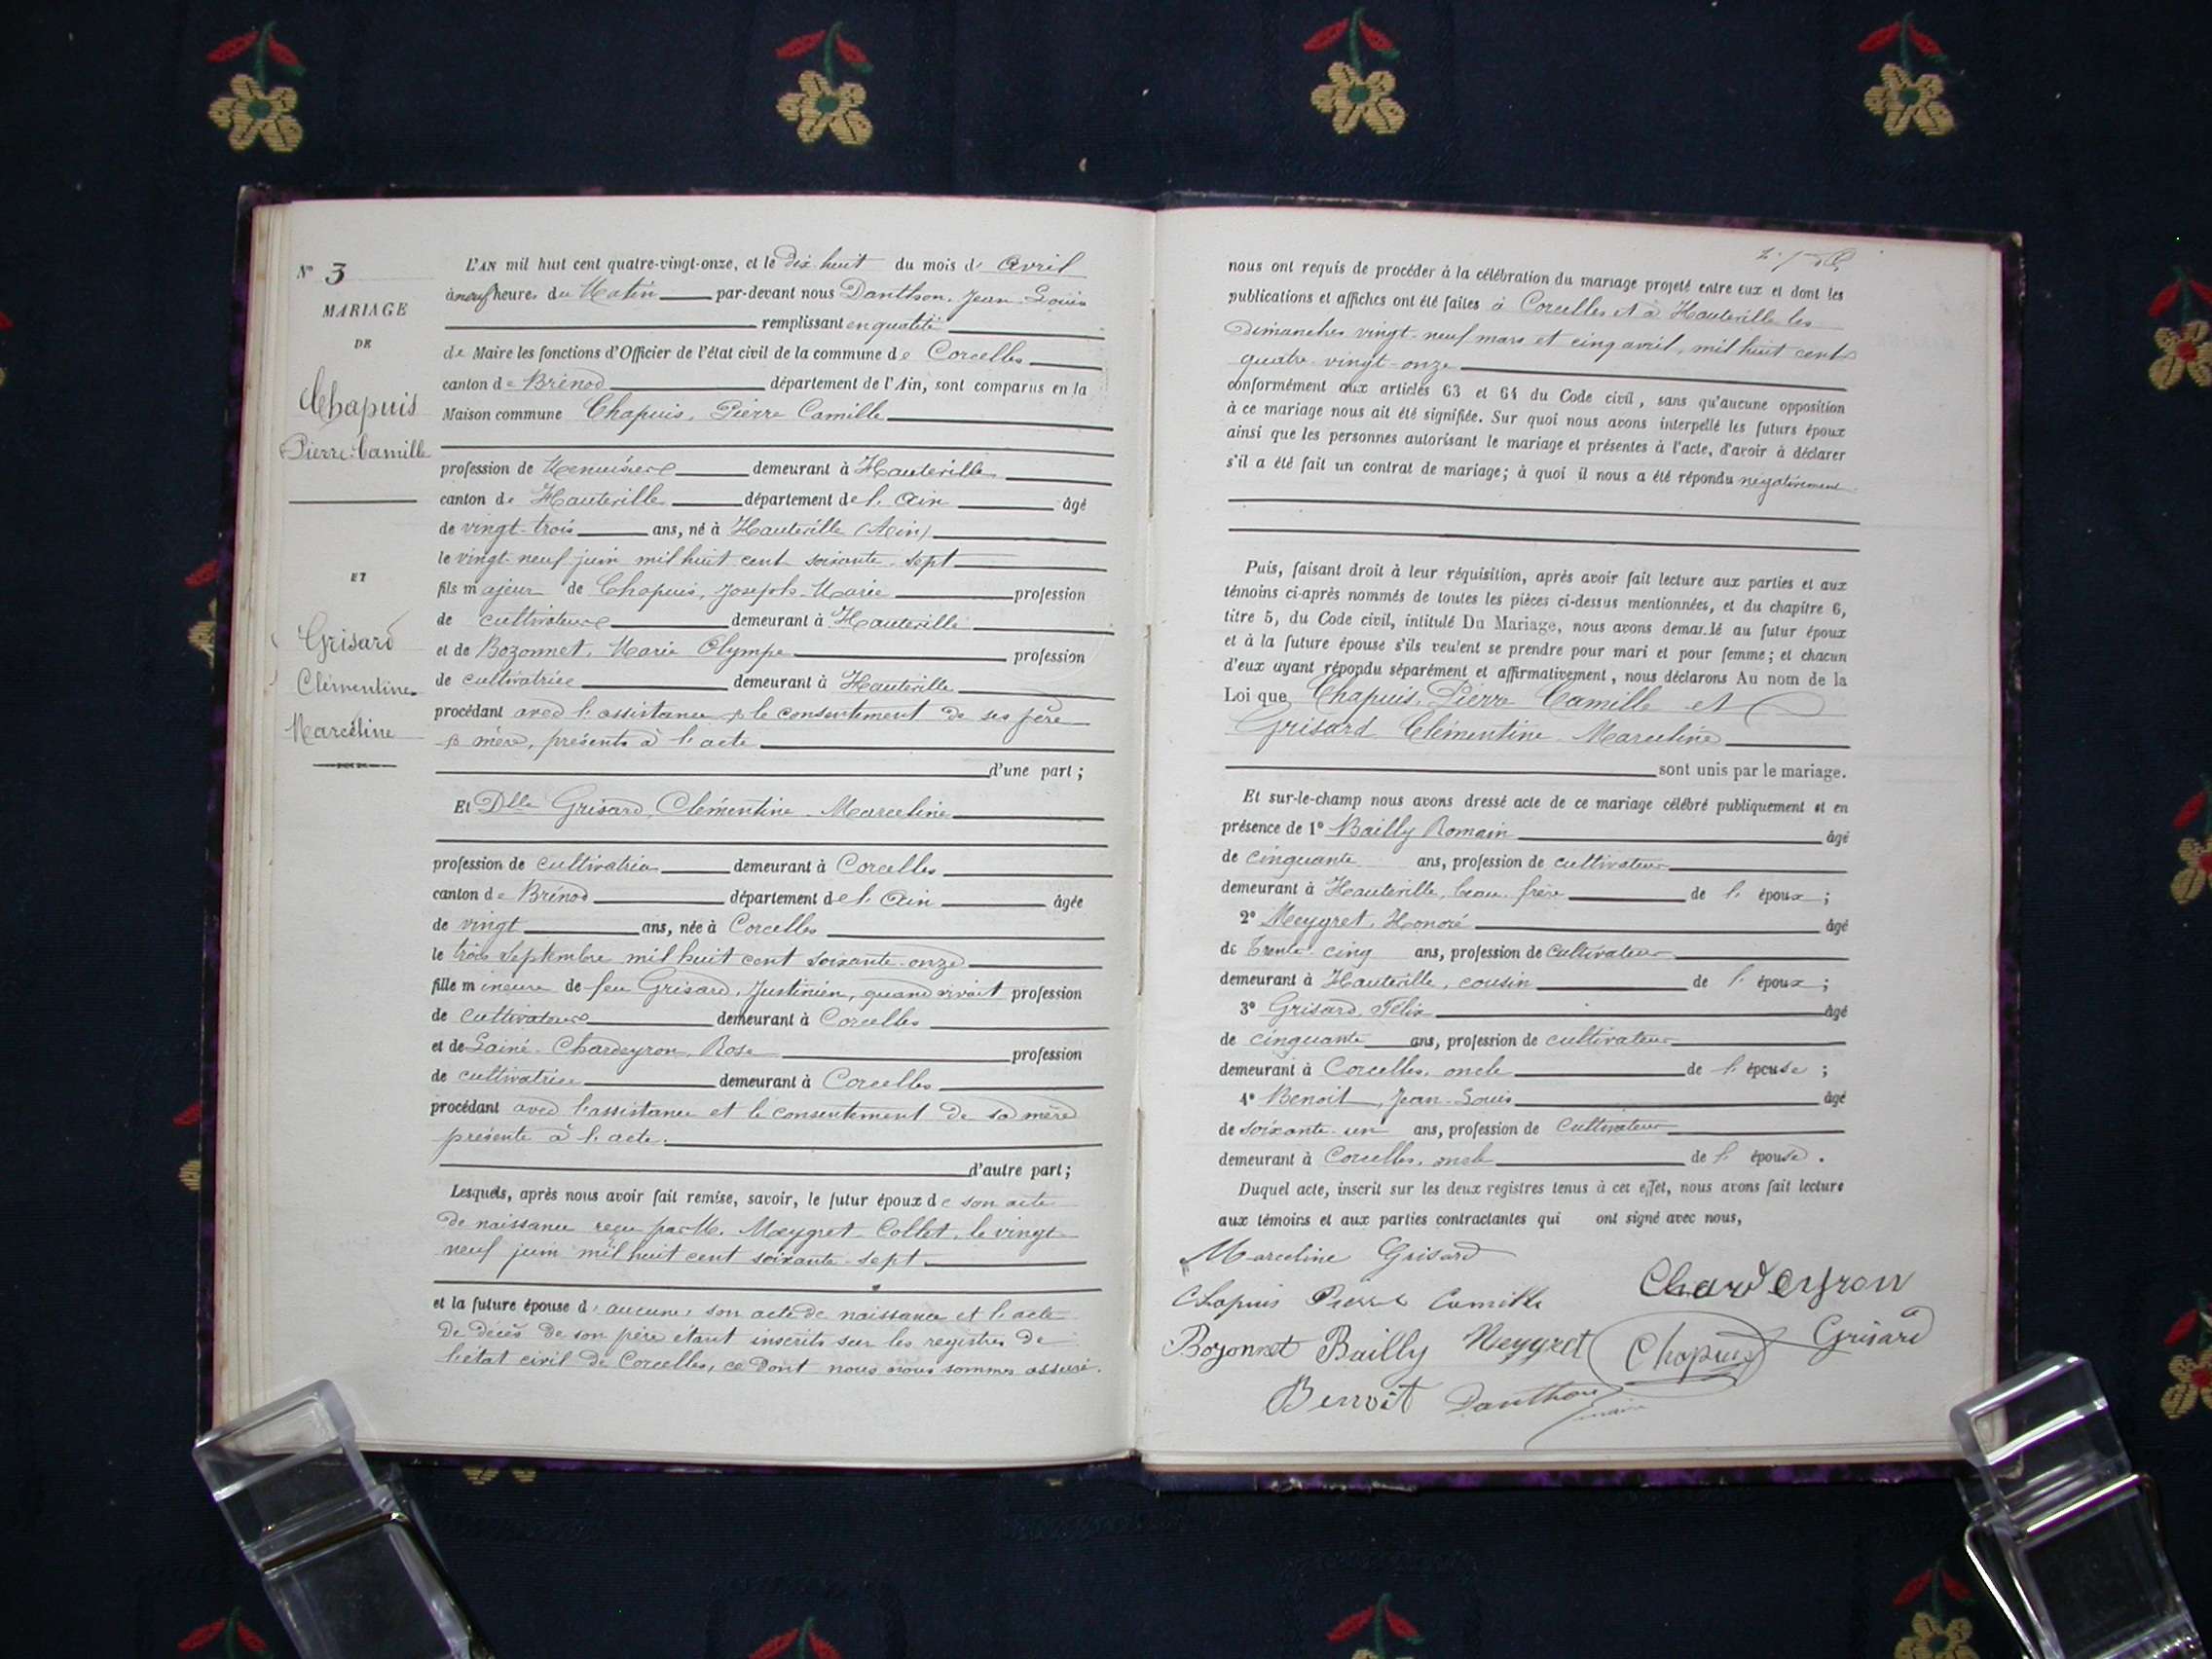 N° 3
MARIAGE
DE
Chapuis
Pierre-Camille
ET
Grisard
Clémentine
Marcéline
L'AN mil huit cent quatre-vingt-onze, et le Dix huit du mois d' Avril
à neuf heures du Matin par-devant nous Danthon, Jean-Louis
remplissant en qualité
de Maire les fonctions d'Officier de l'état civil de la commune de Corcelles
canton de Brénod département de l'Ain, sont comparus en la
Maison commune Chapuis, Pierre Camille
profession de Menuisier demeurant à Hauteville
canton de Hauteville département de l'Ain âgé
de vingt-trois ans, né à Hauteville (Ain)
le vingt-neuf juin mil huit cent soixante-sept
fils majeur de Chapuis, Joseph-Marie profession
de cultivateur demeurant à Hauteville
et de Bozonnet, Marie Olympe profession
de cultivatrice demeurant à Hauteville
procédant avec l'assistance & le consentement de ses père
& mère, présents à l'acte
d'une part ;
Et Dlle Grisard, Clémentine-Marceline
profession de cultivatrice demeurant à Corcelles
canton de Brénod département de l'Ain âgée
de vingt ans, née à Corcelles
le trois Septembre mil huit cent soixante-onze
fille mineure de feu Grisard, Justinien, quand vivait profession
de cultivateur demeurant à Corcelles
et de Lainé-Chardeyron, Rose profession
de cultivatrice demeurant à Corcelles
procédant avec l'assistance et le consentement de sa mère
présente à l'acte.
d'autre part ;
Lesquels, après nous avoir fait remise, savoir, le futur époux de son acte
de naissance reçu par M. Meygret-Collet, le vingt
neuf juin mil huit cent soixante-sept
et la future épouse d'aucune, son acte de naissance et l'acte
de décès de son père étant inscrits sur les registres de
l'état civil de Corcelles, ce dont nous nous sommes assuré.
nous ont requis de procéder à la célébration du mariage projeté entre eux et dont les
publications et affiches ont été faites à Corcelles et à Hauteville les
Dimanches vingt-neuf mars et cinq avril, mil huit cent
quatre-vingt-onze
conformément aux articles 63 et 64 du Code civil, sans qu'aucune opposition
à ce mariage nous ait été signifiée. Sur quoi nous avons interpellé les futurs époux
ainsi que les personnes autorisant le mariage et présentes à l'acte, d'avoir à déclarer
s'il a été fait un contrat de mariage; à quoi il nous a été répondu négativement
Puis, faisant droit à leur réquisition, après avoir fait lecture aux parties et aux
témoins ci-après nommés de toutes les pièces ci-dessus mentionnées, et du chapitre 6,
titre 5, du Code civil, intitulé Du Mariage, nous avons demandé au futur époux
et à la future épouse s'ils veulent se prendre pour mari et pour femme; et chacun
d'eux ayant répondu séparément et affirmativement, nous déclarons Au nom de la
Loi que Chapuis, Pierre Camille et
Grisard Clémentine-Marceline
sont unis par le mariage.
Et sur-le-champ nous avons dressé acte de ce mariage célébré publiquement et en
présence de 1° Bailly Romain âgé
de cinquante ans, profession de cultivateur
demeurant à Hauteville, beau-frère de l'époux ;
2° Meygret, Honoré âgé
de trente-cinq ans, profession de cultivateur
demeurant à Hauteville, cousin de l'époux ;
3° Grisard, Félix âgé
de cinquante ans, profession de cultivateur
demeurant à Corcelles, oncle de l'épouse ;
4° Benoit, Jean-Louis âgé
de soixante-un ans, profession de cultivateur
demeurant à Corcelles, oncle de l'épouse.
Duquel acte, inscrit sur les deux registres tenus à cet effet, nous avons fait lecture
aux témoins et aux parties contractantes qui ont signé avec nous,
Marceline Grisard
Chardeyron
Chapuis Pierre Camille
Bozonnet Bailly Meygret Chapuis Grisard
Benoit Danthon
maire